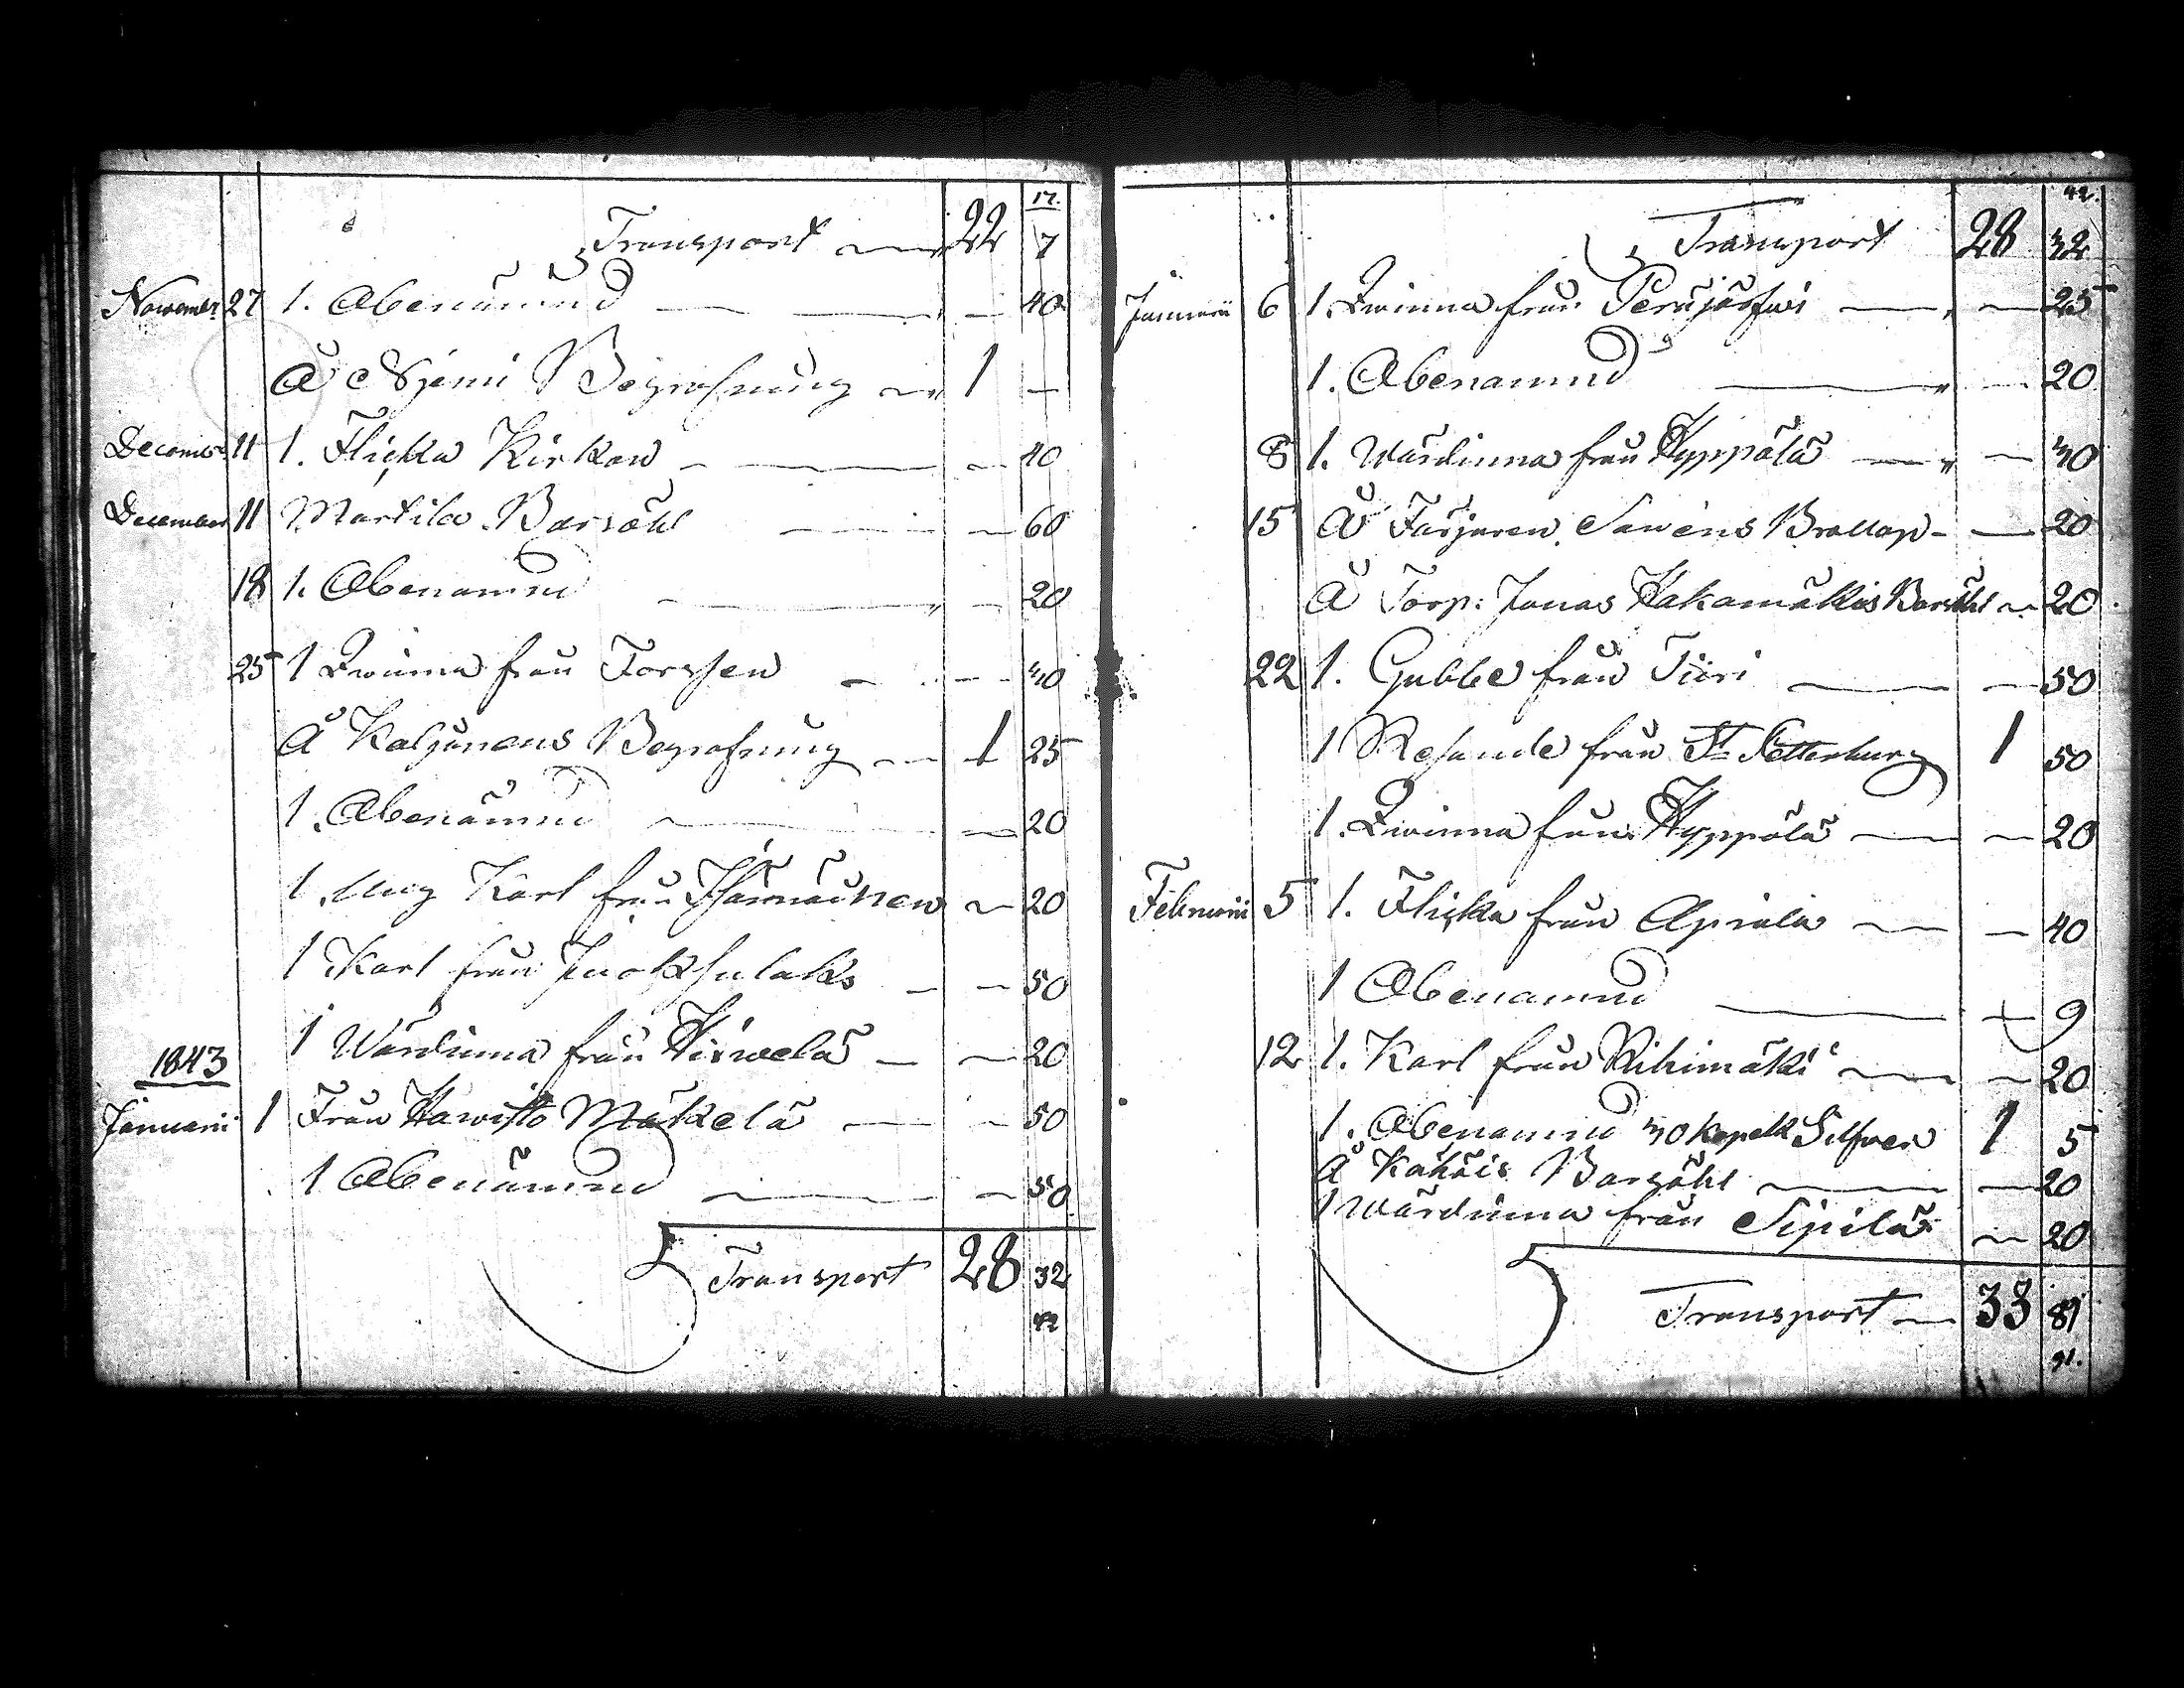 17.
Transport 22 7
November 27 1. Obenämnd — 40
Å Njemi Begrafning 1 —
December 11 1. Flicka Kirkow — 40
December 11 Martila Barsöhl — 60
18 1. Obenamnd — 20
25 1 Qwinna från Torssen — 40
Å Kaljunens Begrafning 1 25
1. Obenämnd — 20
1. Ung Karl från — 20
1 Karl från — 50
1 Wärdinna från Hirwelä — 20
1843
Januarii 1 Från Hawisto Mäkelä — 50
1 Obenämnd — 50
Transport 28 32
42
42.
Transport 28 32
Januarii 6 1. Qwinna från Perujärfwi — 25
1. Obenamnd — 20
8 1. Wärdinna från Hyppölä — 40
15 Å Färjaren Sawéns Brøllop — 20
Å Torp: Jonas Hakamäkis Barsöhl — 20
22 1. Gubbe från Tiiri — 50
1 Resande från St Petterburg 1 50
1. Qwinna från Hyppölä — 20
Februarii 5 1. Flicka från Apiala — 40
1 Obenamnd — 9
12 1. Karl från Rihimäki — 20
1. Obenamnd 30 kopek Silfwer 1 5
Å Kähöis Barsöhl — 20
1 Wärdinna från Sipilä — 20
Transport 33 81
91.